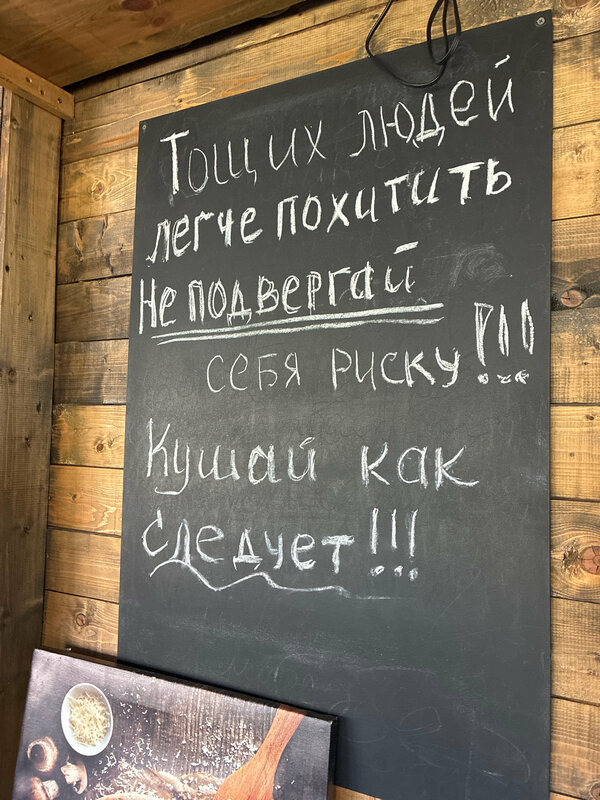 Тощих людей
легче похитить
Не подвергай
себя риску!!!
Кушай как
следует!!!